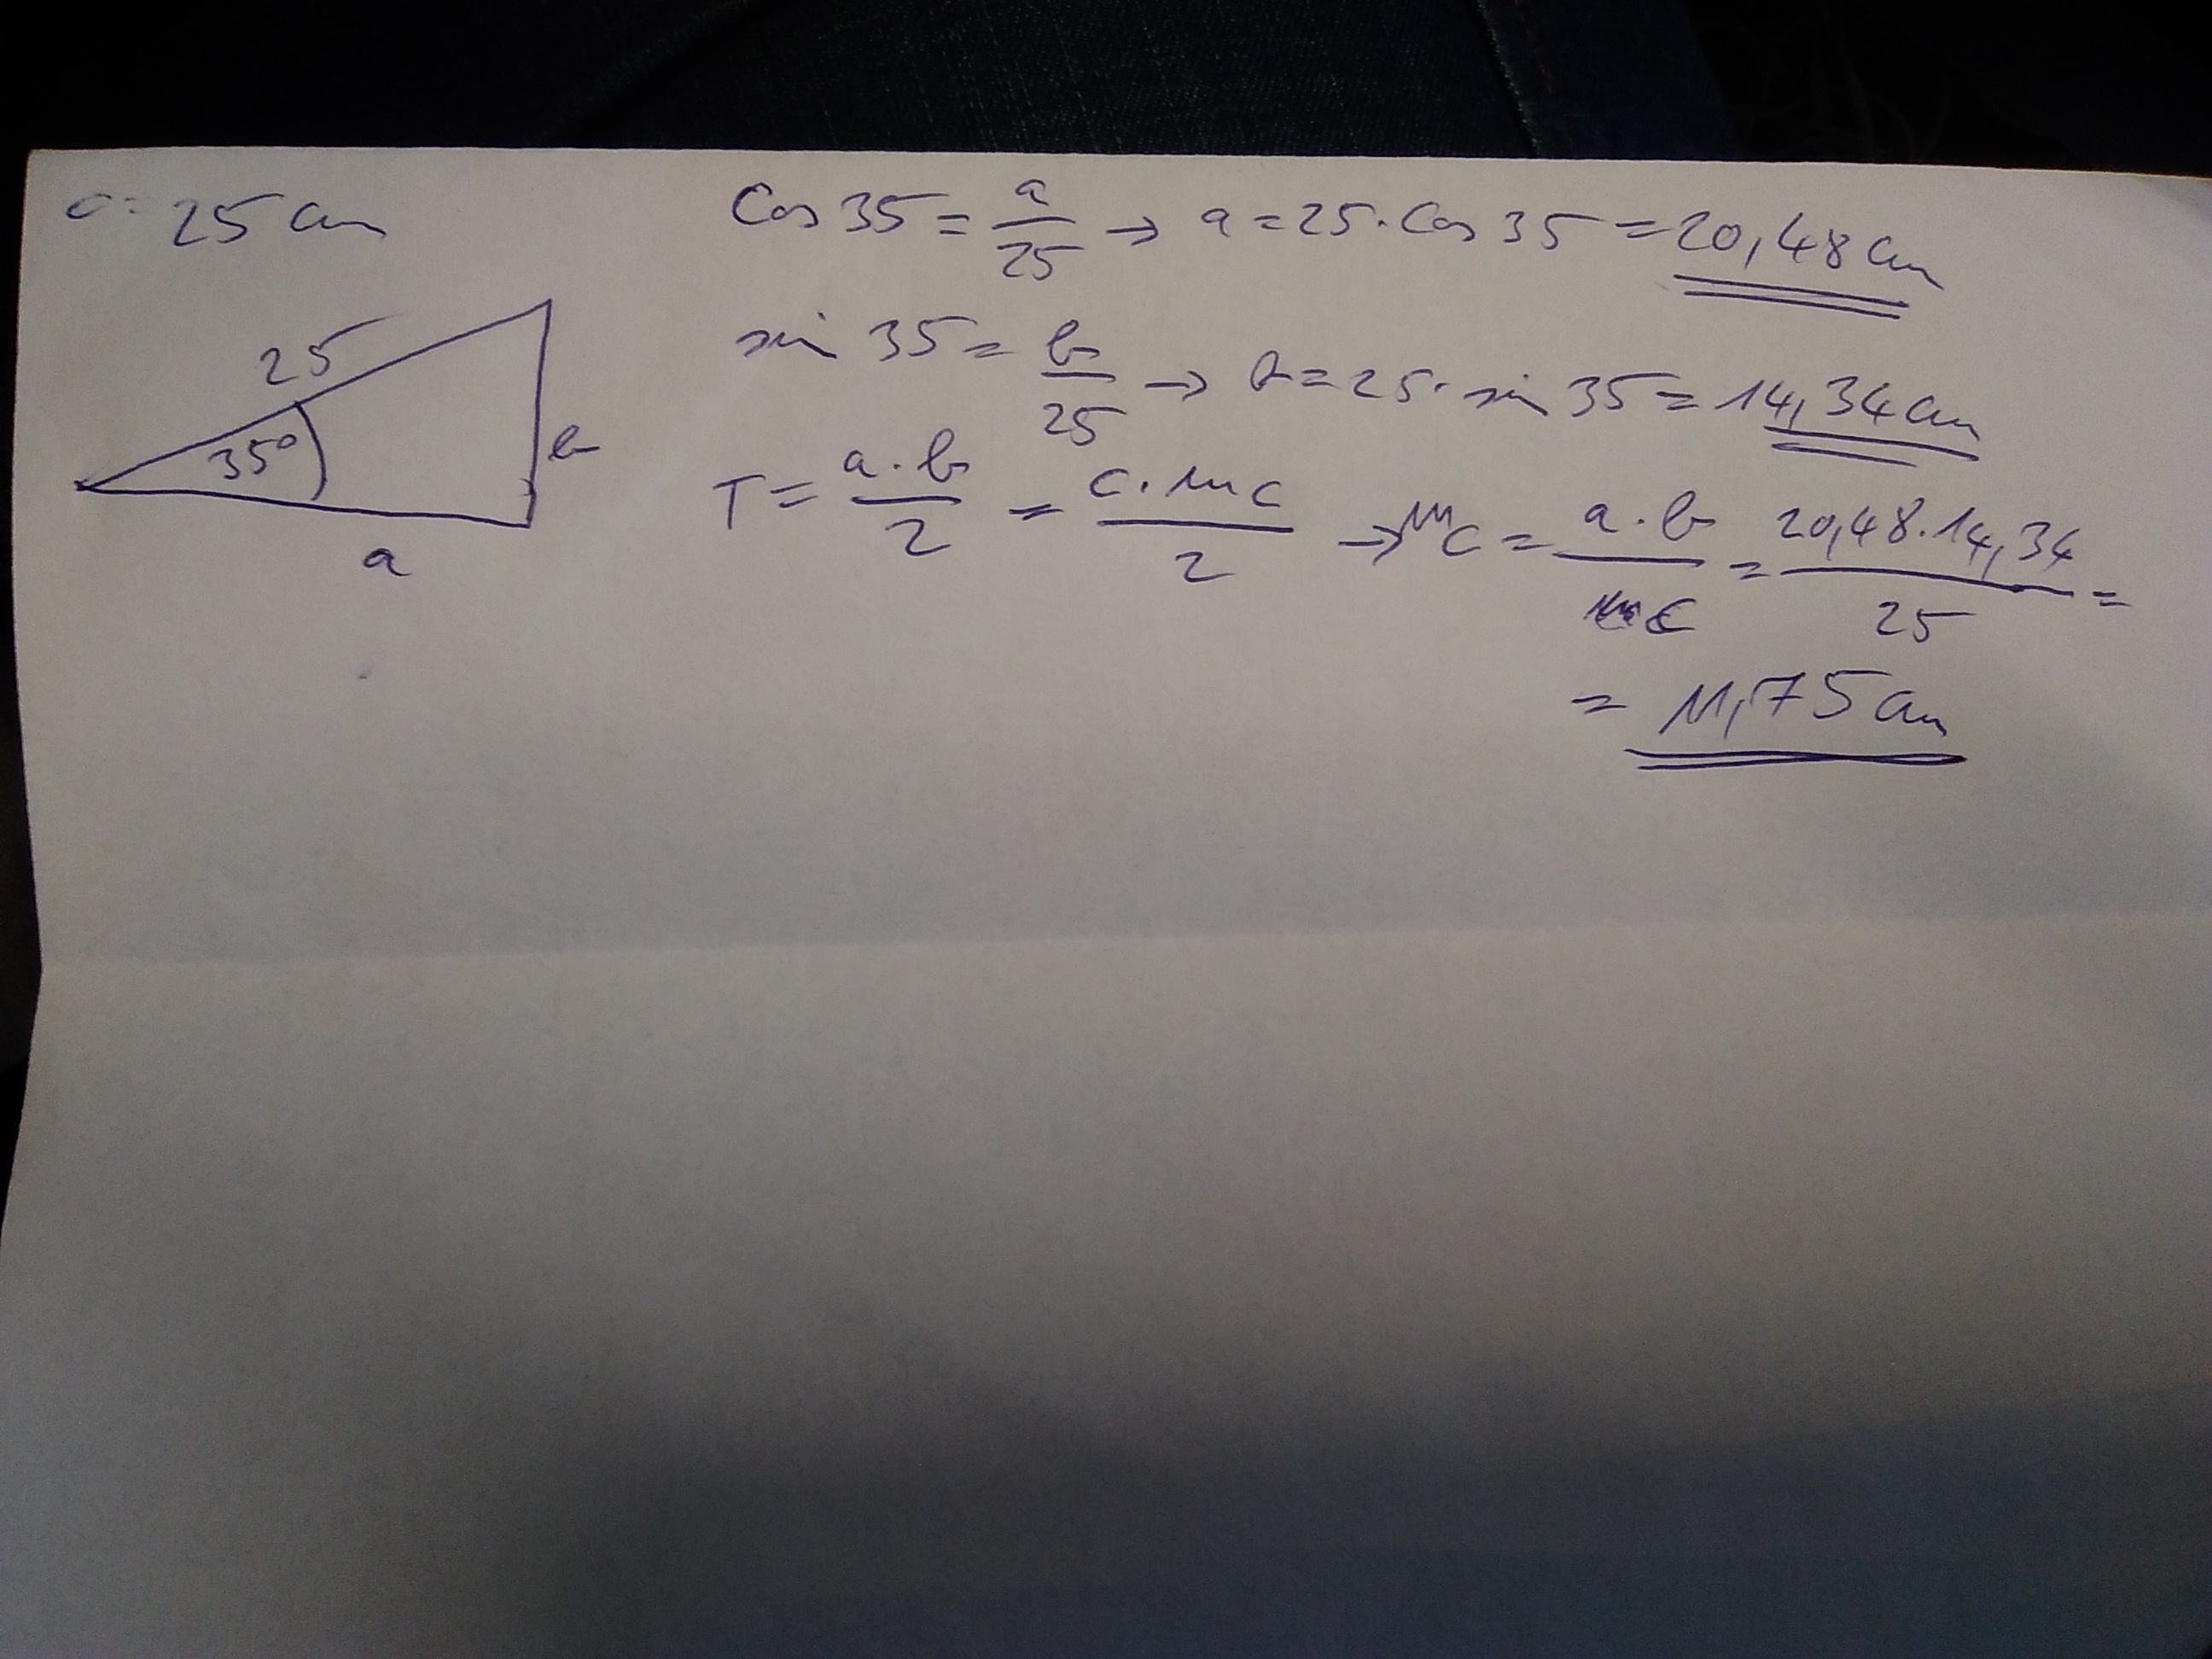 c = 25 cm
25
35°
b
a
cos 35 = a/25 → a = 25 · cos 35 = 20,48 cm
sin 35 = b/25 → b = 25 · sin 35 = 14,34 cm
T = a · b / 2 = c · mc / 2 → mc = a · b / c = 20,48 · 14,34 / 25 =
= 11,75 cm